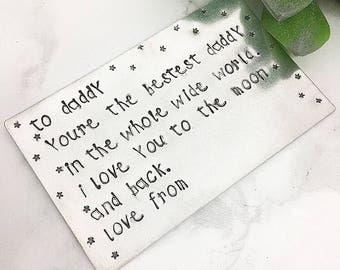 to daddy
Youre the bestest daddy
in the whole wide world.
i love You to the moon
and back.
love from